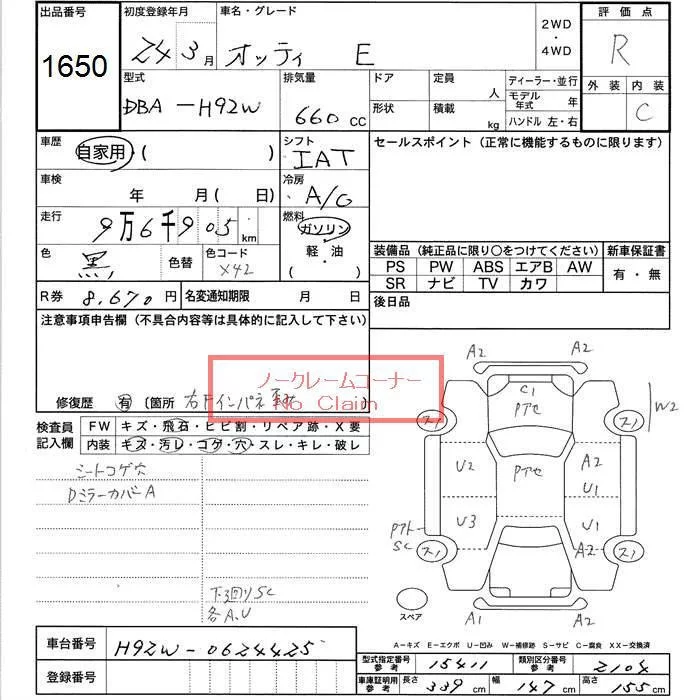 出品番号 初度登録年月 車名・グレード 2WD・4WD 評価点
1650 24 3月 オッティ E R
型式 排気量 ドア 定員 人 ディーラー・並行 外装 内装
DBA-H92W 660cc 形状 積載 kg モデル年式 年 C
ハンドル 左・右
車歴 自家用・( ) シフト IAT セールスポイント(正常に機能するものに限ります)
車検 年 月( 日) 冷房 A/C
走行 9万6千905km 燃料 ガソリン・軽・油・( )
色 黒 色替 色コード X42
装備品(純正品に限り○をつけてください) 新車保証書
PS PW ABS エアB AW 有・無
SR ナビ TV カワ
R券 8,670円 名変通知期限 月 日 後日品
注意事項申告欄(不具合内容等は具体的に記入して下さい)
ノークレームコーナー
No Claim
修復歴 有 〔箇所 右Fインパネ
検査員記入欄 FW キズ・飛石・ヒビ割・リペア跡・X要
内装 キズ・汚レ・コゲ・穴・スレ・キレ・破レ
シートコゲ穴
DミラーカバーA
下廻りSC
各A、U
A2 A2
C1
Pアセ
W2
ス1 ス1
U2 Pアセ A2
U1
U3 U1
Pアト SC A2
ス1 ス1
スペア A1 A2
A-キズ E-エクボ U-凹み W-補修跡 S-サビ C-腐食 XX-交換済
車台番号 H92W-0624425
登録番号
型式指定番号 参考 15411 類別区分番号 参考 2104
車庫証明用 参考 長さ 339cm 幅 147cm 高さ 155cm